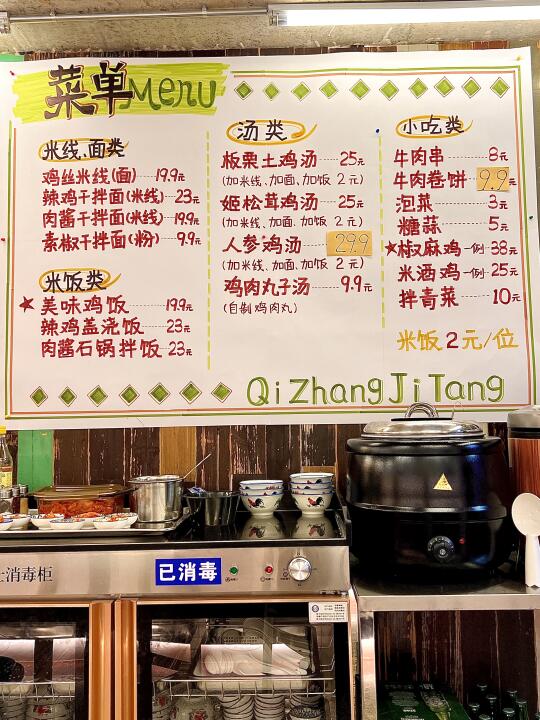 菜单Menu
米线、面类
鸡丝米线(面) 19.9元
辣鸡干拌面(米线) 23元
肉酱干拌面(米线) 19.9元
素椒干拌面(粉) 9.9元
米饭类
★美味鸡饭 19.9元
辣鸡盖浇饭 23元
肉酱石锅拌饭 23元
汤类
板栗土鸡汤 25元
(加米线、加面、加饭 2元)
姬松茸鸡汤 25元
(加米线、加面、加饭 2元)
人参鸡汤 29.9
(加米线、加面、加饭 2元)
鸡肉丸子汤 9.9元
(自制鸡肉丸)
小吃类
牛肉串 8元
牛肉卷饼 9.9元
泡菜 3元
糖蒜 5元
★椒麻鸡一例 38元
米酒鸡一例 25元
拌青菜 10元
米饭2元/位
QiZhangJiTang
消毒柜
已消毒